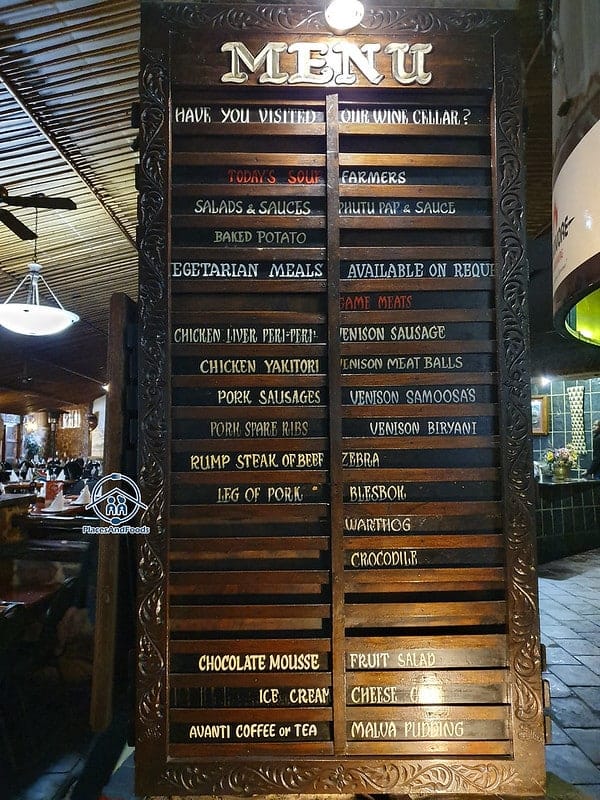 MENU
HAVE YOU VISITED OUR WINE CELLAR?
TODAY'S SOUP FARMERS
SALADS & SAUCES PHUTU PAP & SAUCE
BAKED POTATO
EGETARIAN MEALS AVAILABLE ON REQUE
GAME MEATS
CHICKEN LIVER PERI-PERI- VENISON SAUSAGE
CHICKEN YAKITORI VENISON MEAT BALLS
PORK SAUSAGES VENISON SAMOOSA'S
PORK SPARE RIBS VENISON BIRYANI
RUMP STEAK OF BEEF ZEBRA
LEG OF PORK BLESBOK
WARTHOG
CROCODILE
CHOCOLATE MOUSSE FRUIT SALAD
ICE CREAM CHEESE
AVANTI COFFEE or TEA MALVA PUDDING
PlacesAndFoods